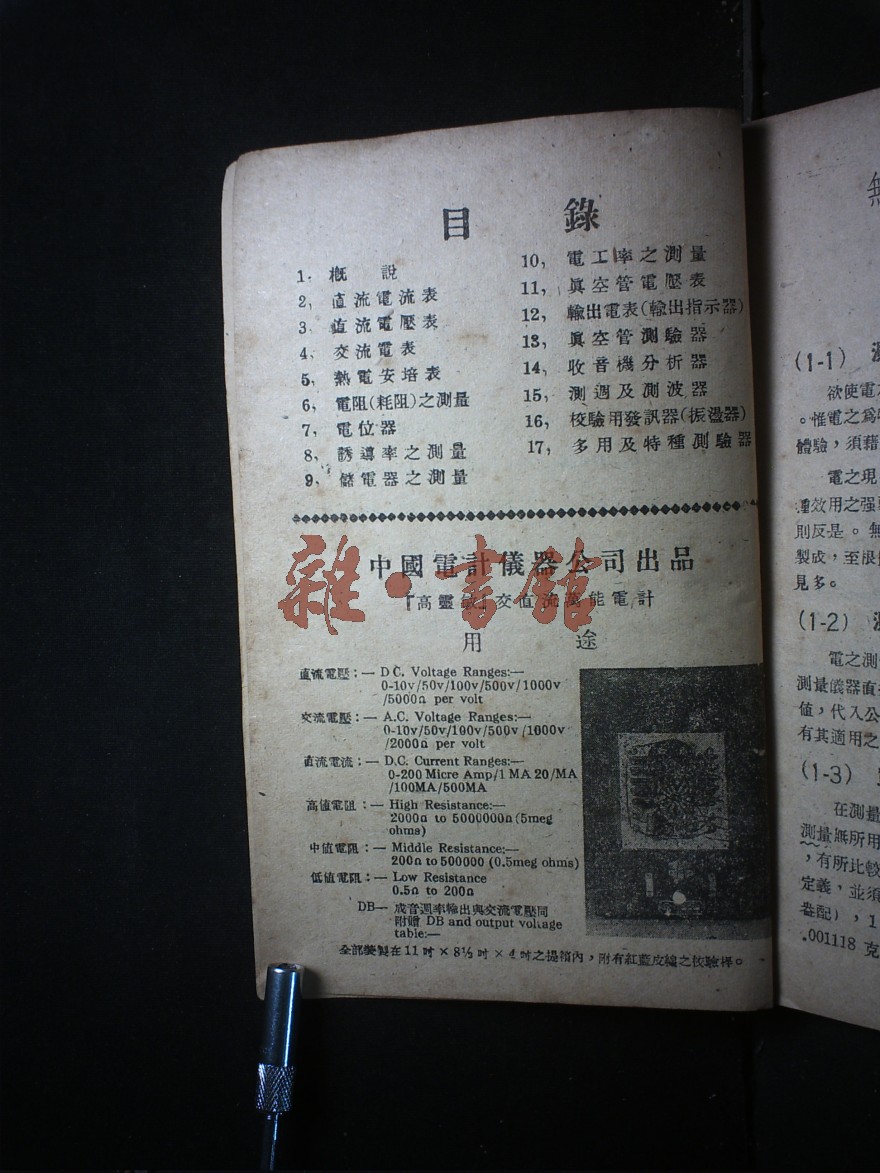 目 錄
1. 概 說
2, 直流電流表
3. 直流電壓表
4. 交流電表
5, 熱電安培表
6, 電阻(耗阻)之測量
7, 電位器
8, 誘導率之測量
9. 儲電器之測量
10, 電工率之測量
11, 眞空管電壓表
12, 輸出電表(輸出指示器)
13, 眞空管測驗器
14, 收音機分析器
15, 測週及測波器
16, 校驗用發訊器(振盪器)
17, 多用及特種測驗器
中國電計儀器公司出品
「高靈敏」交直流萬能電計
用 途
直流電壓：— D C. Voltage Ranges:—
0-10v/50v/100v/500v/1000v
/5000Ω per volt
交流電壓：— A.C. Voltage Ranges:—
0-10v/50v/100v/500v/1000v
/2000Ω per volt
直流電流：— D.C. Current Ranges:—
0-200 Micre Amp/1 MA 20/MA
/100MA/500MA
高値電阻：— High Resistance:—
2000Ω to 5000000Ω (5meg
ohms)
中値電阻：— Middle Resistance:—
200Ω to 500000 (0.5meg ohms)
低値電阻：— Low Resistance
0.5Ω to 200Ω
DB— 成音週率輸出與交流電壓同
附贈 DB and output voltage
table:—
全部裝製在11吋×8½吋×4吋之提箱內，附有紅藍皮線之校驗棒。
雜·書館
無
(1-1)
欲使電
。惟電之爲
體驗，須藉
電之現
種效用之强
則反是。無
製成，至
見多。
(1-2)
電之測
測量儀器直
値，代入公
有其適用之
(1-3)
在測量
測量無所用
，有所比較
定義，並須
，1
.001118 克